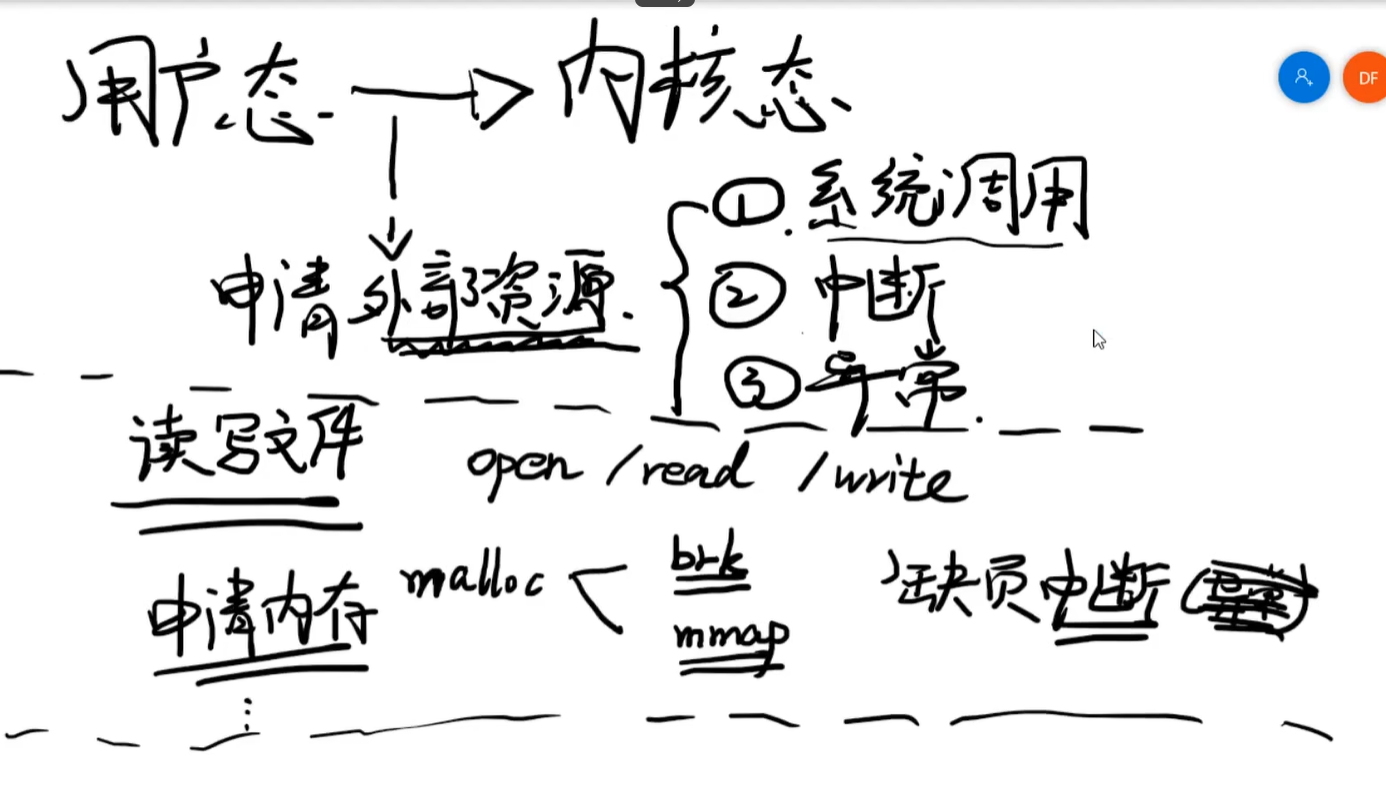 用户态 → 内核态
DF
申请外部资源.
①. 系统调用
② 中断
③ 异常.
读写文件 open /read /write
申请内存 malloc brk 缺页中断
mmap